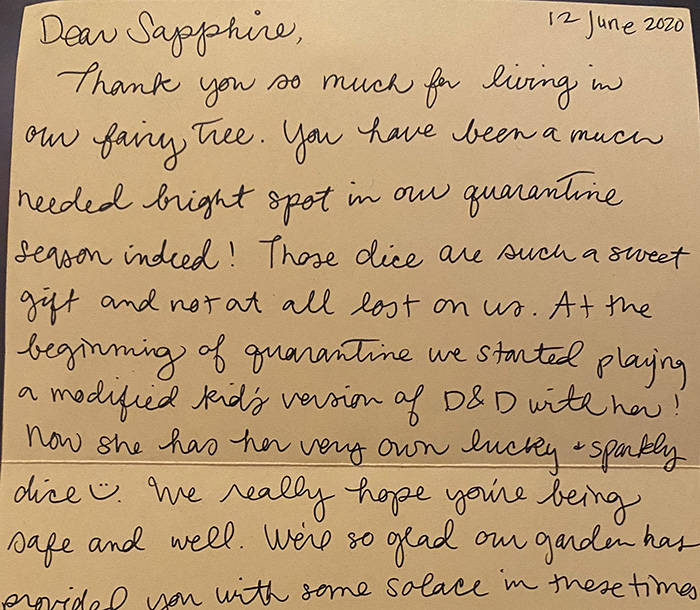 12 June 2020
Dear Sapphire,
Thank you so much for living in
our fairy tree. You have been a much
needed bright spot in our quarantine
season indeed! Those dice are such a sweet
gift and not at all lost on us. At the
beginning of quarantine we started playing
a modified kid's version of D&D with her!
Now she has her very own lucky + sparkly
dice ☺. We really hope you're being
safe and well. We're so glad our garden has
provided you with some solace in these times